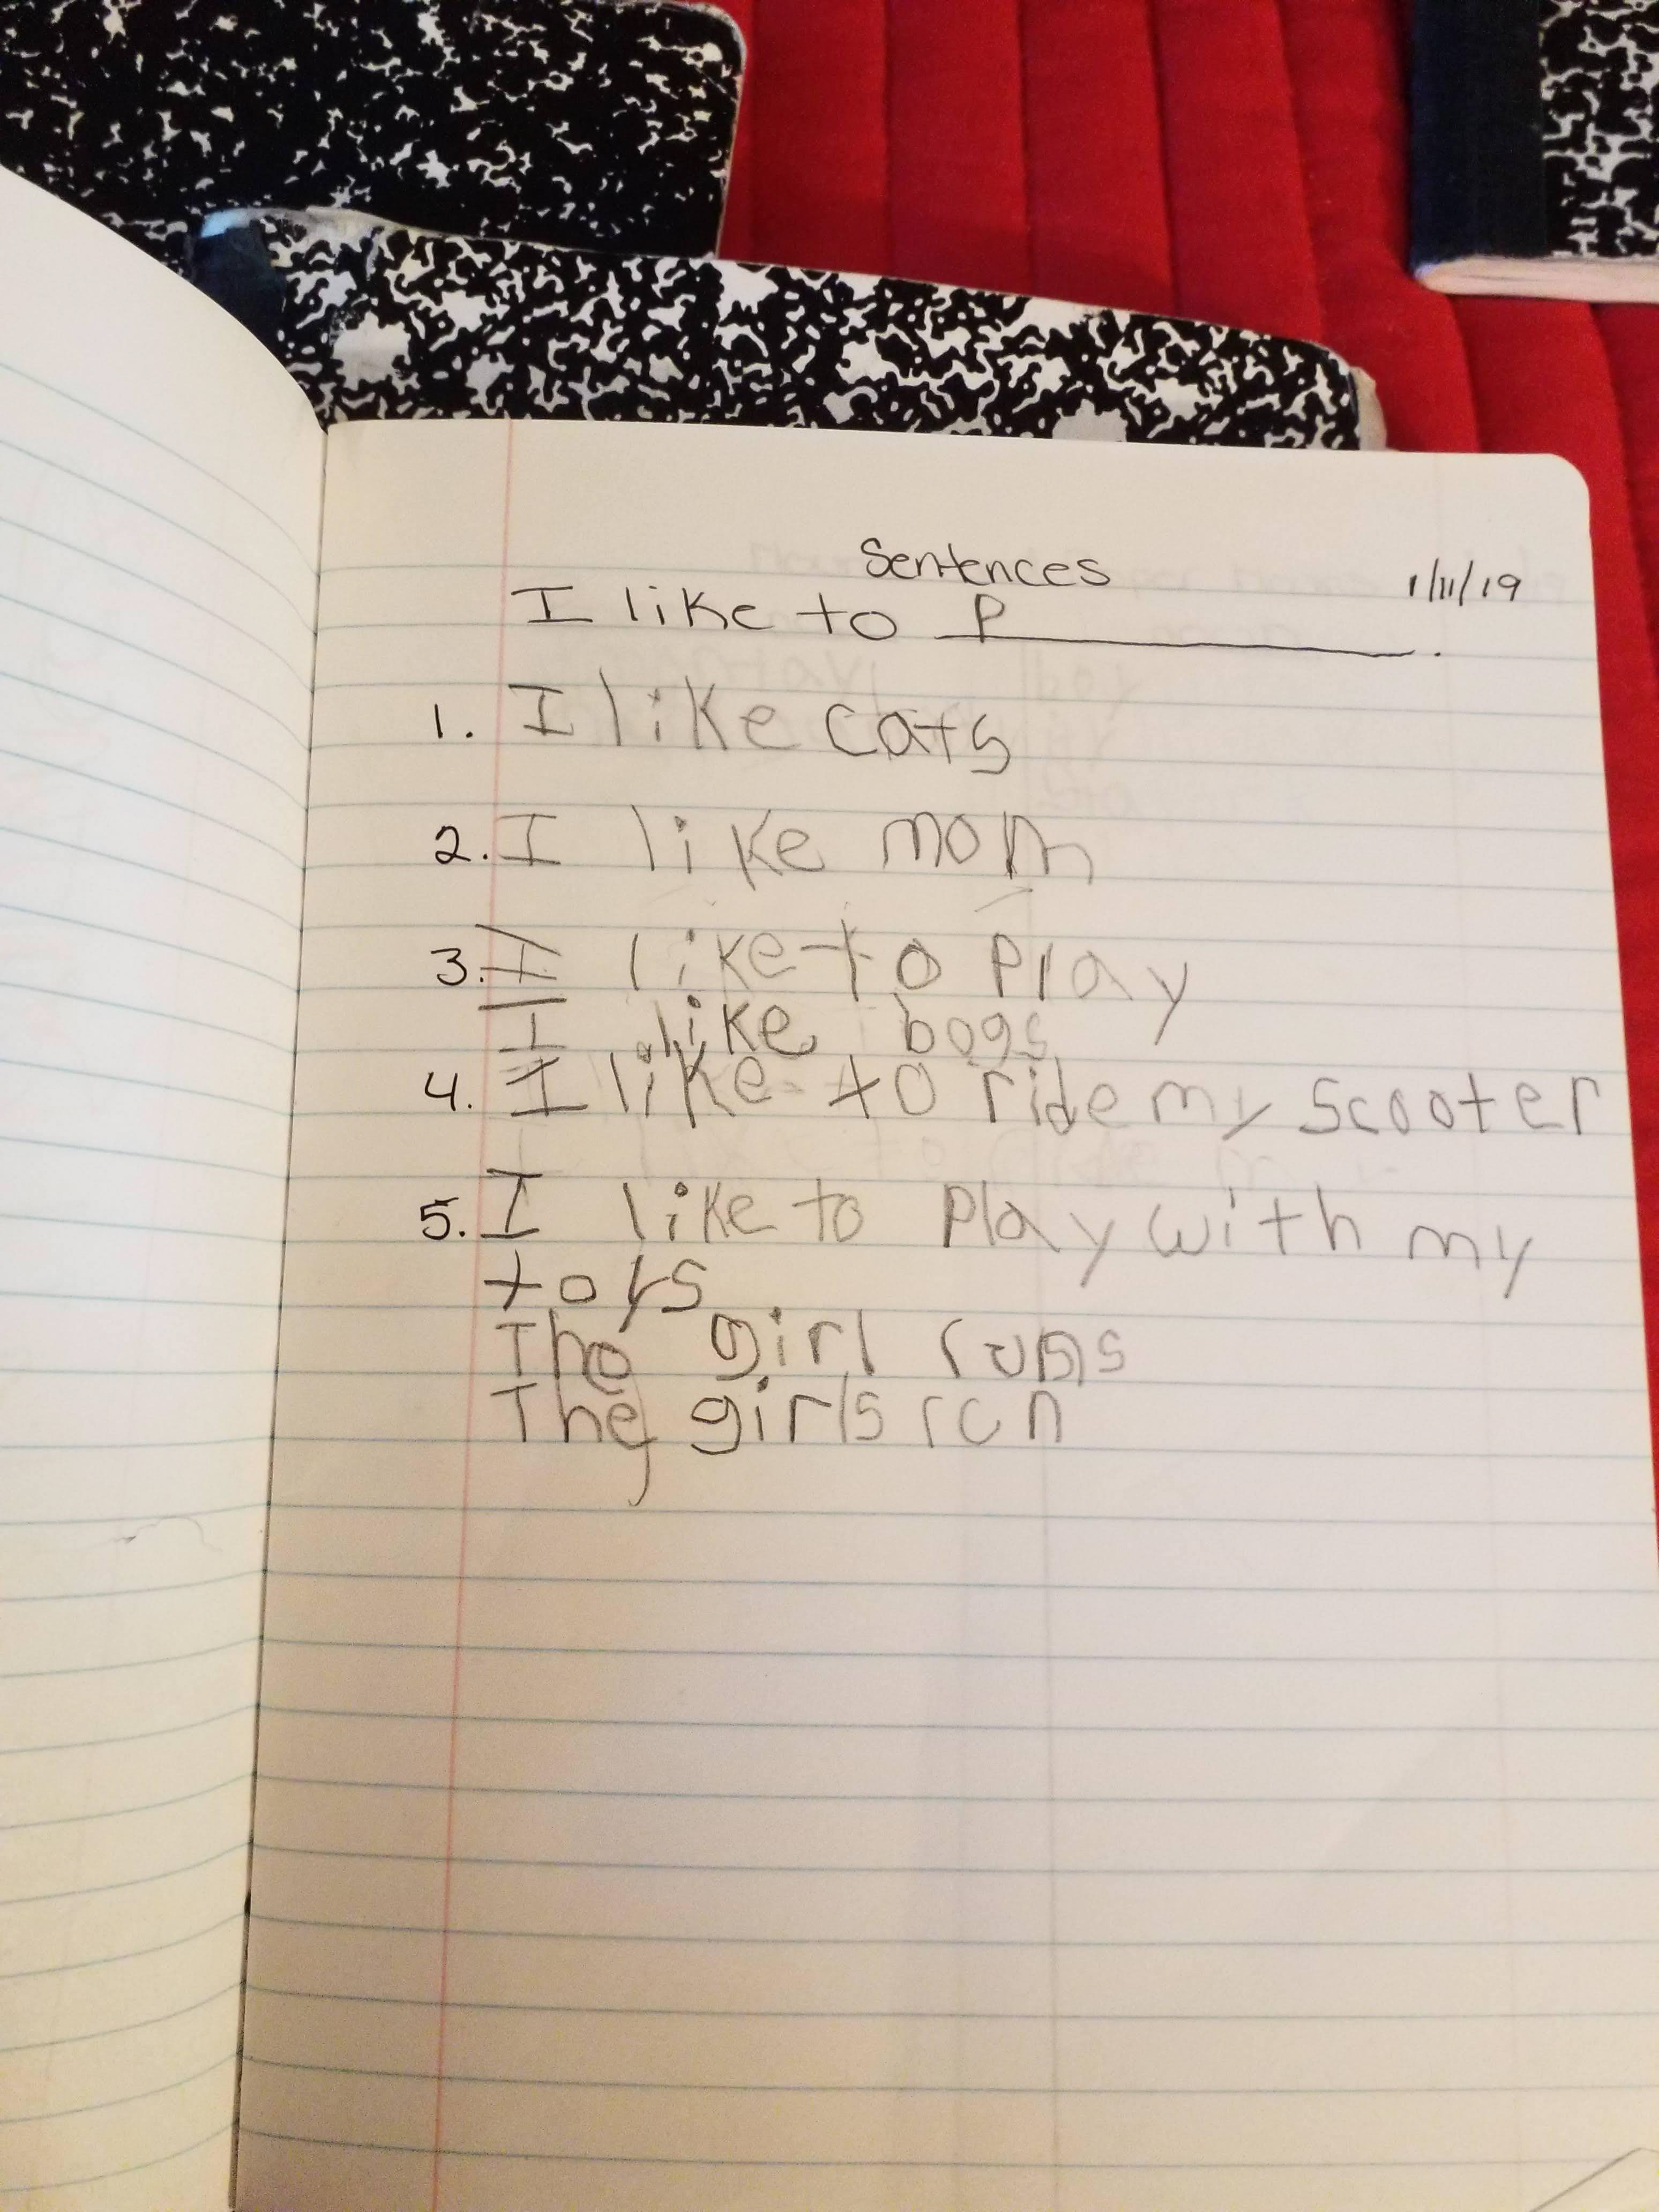 Sentences
1/11/19
I like to P__________.
1. I like cats
2. I like mom
3. I like to Play
I like bogs
4. I like to ride my scooter
5. I like to Play with my
toys
The girl runs
The girls run